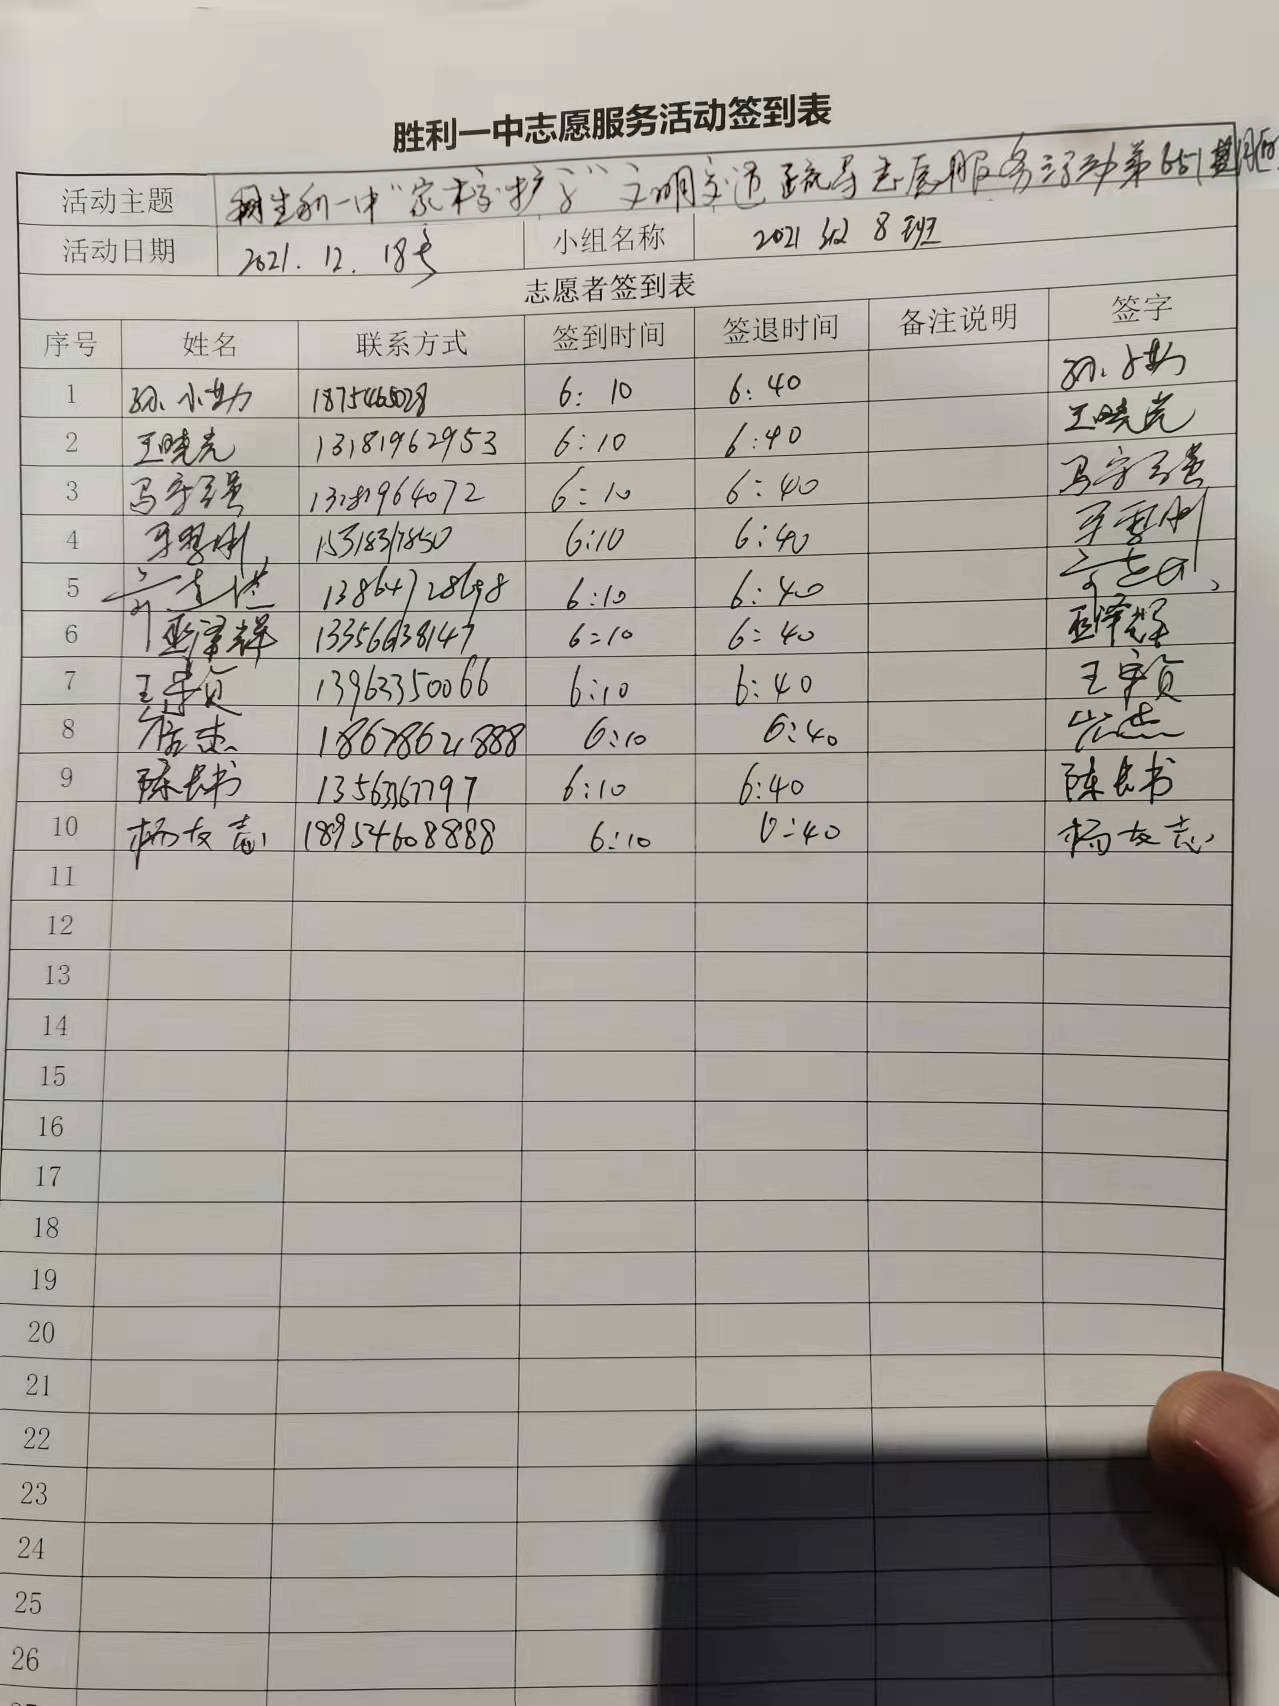 胜利一中志愿服务活动签到表
活动主题 胜利一中"家校护学"文明交通疏导志愿服务活动第651期
活动日期 2021.12.18号 小组名称 2021级 8班
志愿者签到表
序号 姓名 联系方式 签到时间 签退时间 备注说明 签字
1 孙小勤 6:10 6:40
2 王晓光 13181962953 6:10 6:40 王晓光
3 6:10 6:40
4 15318317850 6:10 6:40
5 13864728698 6:10 6:40
6 13356638147 6:10 6:40
7 13963350066 6:10 6:40
8 18678621888 6:10 6:40
9 陈长书 1356367797 6:10 6:40 陈长书
10 杨友志 18954608888 6:10 6:40 杨友志
11
12
13
14
15
16
17
18
19
20
21
22
23
24
25
26